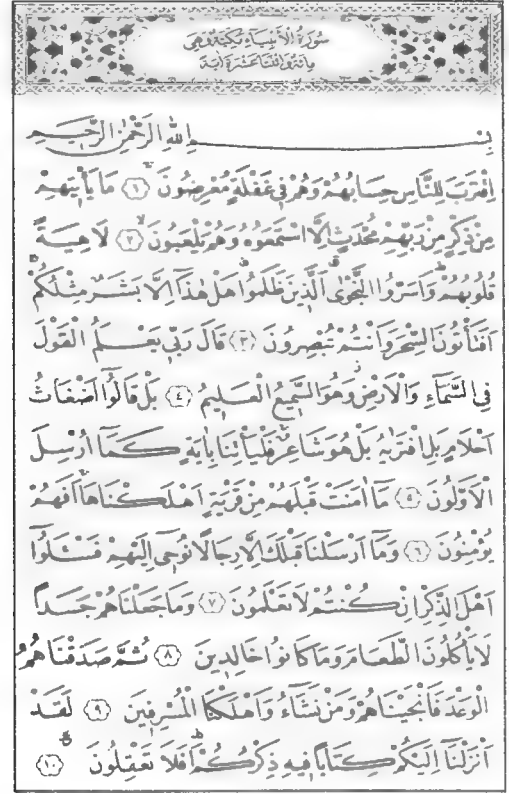 سُورَةُ الْاَنْبِيَاءِ مَكِّيَّةٌ وَهِيَ
مِائَةٌ وَاثْنَتَا عَشْرَةَ اٰيَةً
بِسْمِ اللّٰهِ الرَّحْمٰنِ الرَّحٖيمِ
اِقْتَرَبَ لِلنَّاسِ حِسَابُهُمْ وَهُمْ فٖي غَفْلَةٍ مُعْرِضُونَۚ ﴿١﴾ مَا يَأْتٖيهِمْ
مِنْ ذِكْرٍ مِنْ رَبِّهِمْ مُحْدَثٍ اِلَّا اسْتَمَعُوهُ وَهُمْ يَلْعَبُونَۙ ﴿٢﴾ لَاهِيَةً
قُلُوبُهُمْۜ وَاَسَرُّوا النَّجْوٰىۗ اَلَّذٖينَ ظَلَمُواۗ هَلْ هٰذَٓا اِلَّا بَشَرٌ مِثْلُكُمْۚ
اَفَتَأْتُونَ السِّحْرَ وَاَنْتُمْ تُبْصِرُونَ ﴿٣﴾ قَالَ رَبّٖي يَعْلَمُ الْقَوْلَ
فِي السَّمَٓاءِ وَالْاَرْضِۘ وَهُوَ السَّمٖيعُ الْعَلٖيمُ ﴿٤﴾ بَلْ قَالُٓوا اَضْغَاثُ
اَحْلَامٍ بَلِ افْتَرٰيهُ بَلْ هُوَ شَاعِرٌۚ فَلْيَأْتِنَا بِاٰيَةٍ كَمَٓا اُرْسِلَ
الْاَوَّلُونَ ﴿٥﴾ مَٓا اٰمَنَتْ قَبْلَهُمْ مِنْ قَرْيَةٍ اَهْلَكْنَاهَاۚ اَفَهُمْ
يُؤْمِنُونَ ﴿٦﴾ وَمَٓا اَرْسَلْنَا قَبْلَكَ اِلَّا رِجَالًا نُوحٖٓي اِلَيْهِمْ فَسْـَٔلُٓوا
اَهْلَ الذِّكْرِ اِنْ كُنْتُمْ لَا تَعْلَمُونَ ﴿٧﴾ وَمَا جَعَلْنَاهُمْ جَسَدًا
لَا يَأْكُلُونَ الطَّعَامَ وَمَا كَانُوا خَالِدٖينَ ﴿٨﴾ ثُمَّ صَدَقْنَاهُمُ
الْوَعْدَ فَاَنْجَيْنَاهُمْ وَمَنْ نَشَٓاءُ وَاَهْلَكْنَا الْمُسْرِفٖينَ ﴿٩﴾ لَقَدْ
اَنْزَلْنَٓا اِلَيْكُمْ كِتَابًا فٖيهِ ذِكْرُكُمْۜ اَفَلَا تَعْقِلُونَ۟ ﴿١٠﴾